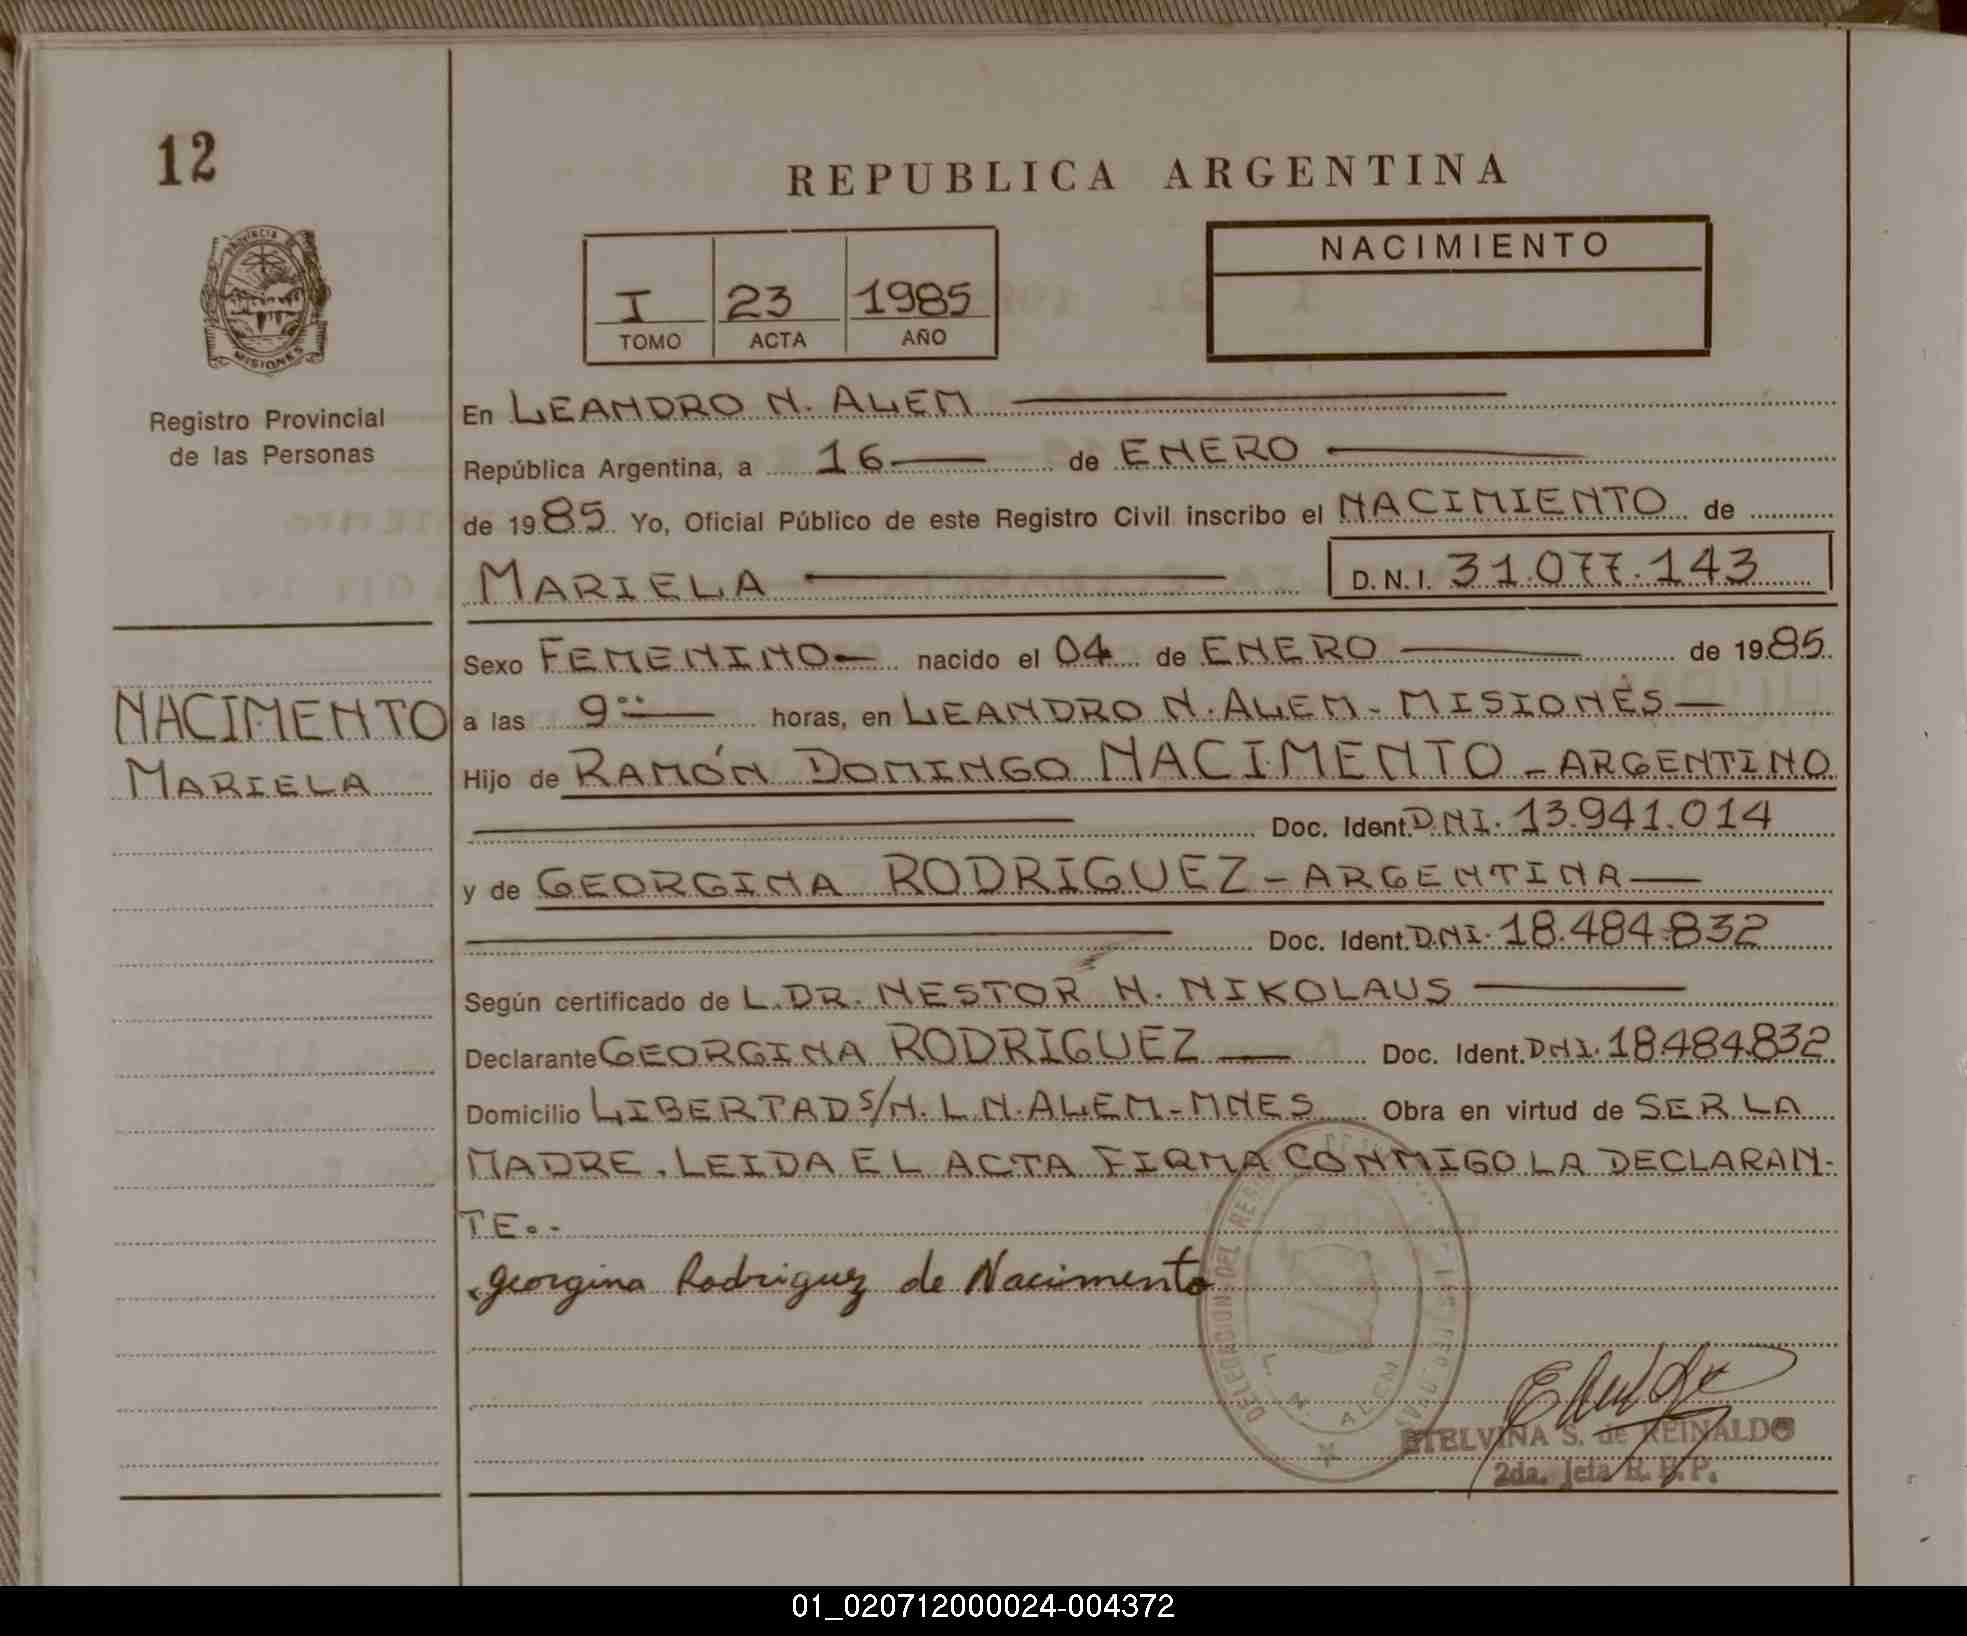 12
REPUBLICA ARGENTINA
PROVINCIA DE
MISIONES
Registro Provincial
de las Personas
I 23 1985
TOMO ACTA AÑO
NACIMIENTO
En LEANDRO N. ALEM
República Argentina, a 16 de ENERO
de 1985 Yo, Oficial Público de este Registro Civil inscribo el NACIMIENTO de
MARIELA D.N.I. 31.077.143
Sexo FEMENINO nacido el 04 de ENERO de 1985
NACIMENTO
MARIELA
a las 9 horas, en LEANDRO N. ALEM - MISIONES
Hijo de RAMÓN DOMINGO NACIMENTO - ARGENTINO
Doc. Ident. D.N.I. 13.941.014
y de GEORGINA RODRIGUEZ - ARGENTINA
Doc. Ident. D.N.I. 18.484.832
Según certificado de L. DR. NESTOR H. NIKOLAUS
Declarante GEORGINA RODRIGUEZ Doc. Ident. DNI. 18.484.832
Domicilio LIBERTAD S/N. L.N. ALEM - MNES Obra en virtud de SER LA
MADRE. LEIDA EL ACTA FIRMA CONMIGO LA DECLARAN-
TE.-
Georgina Rodriguez de Nacimento
DELEGACION DEL
L. N. ALEM
ETELVINA S. de REINALDO
2da. Jefa R. P.
01_020712000024-004372